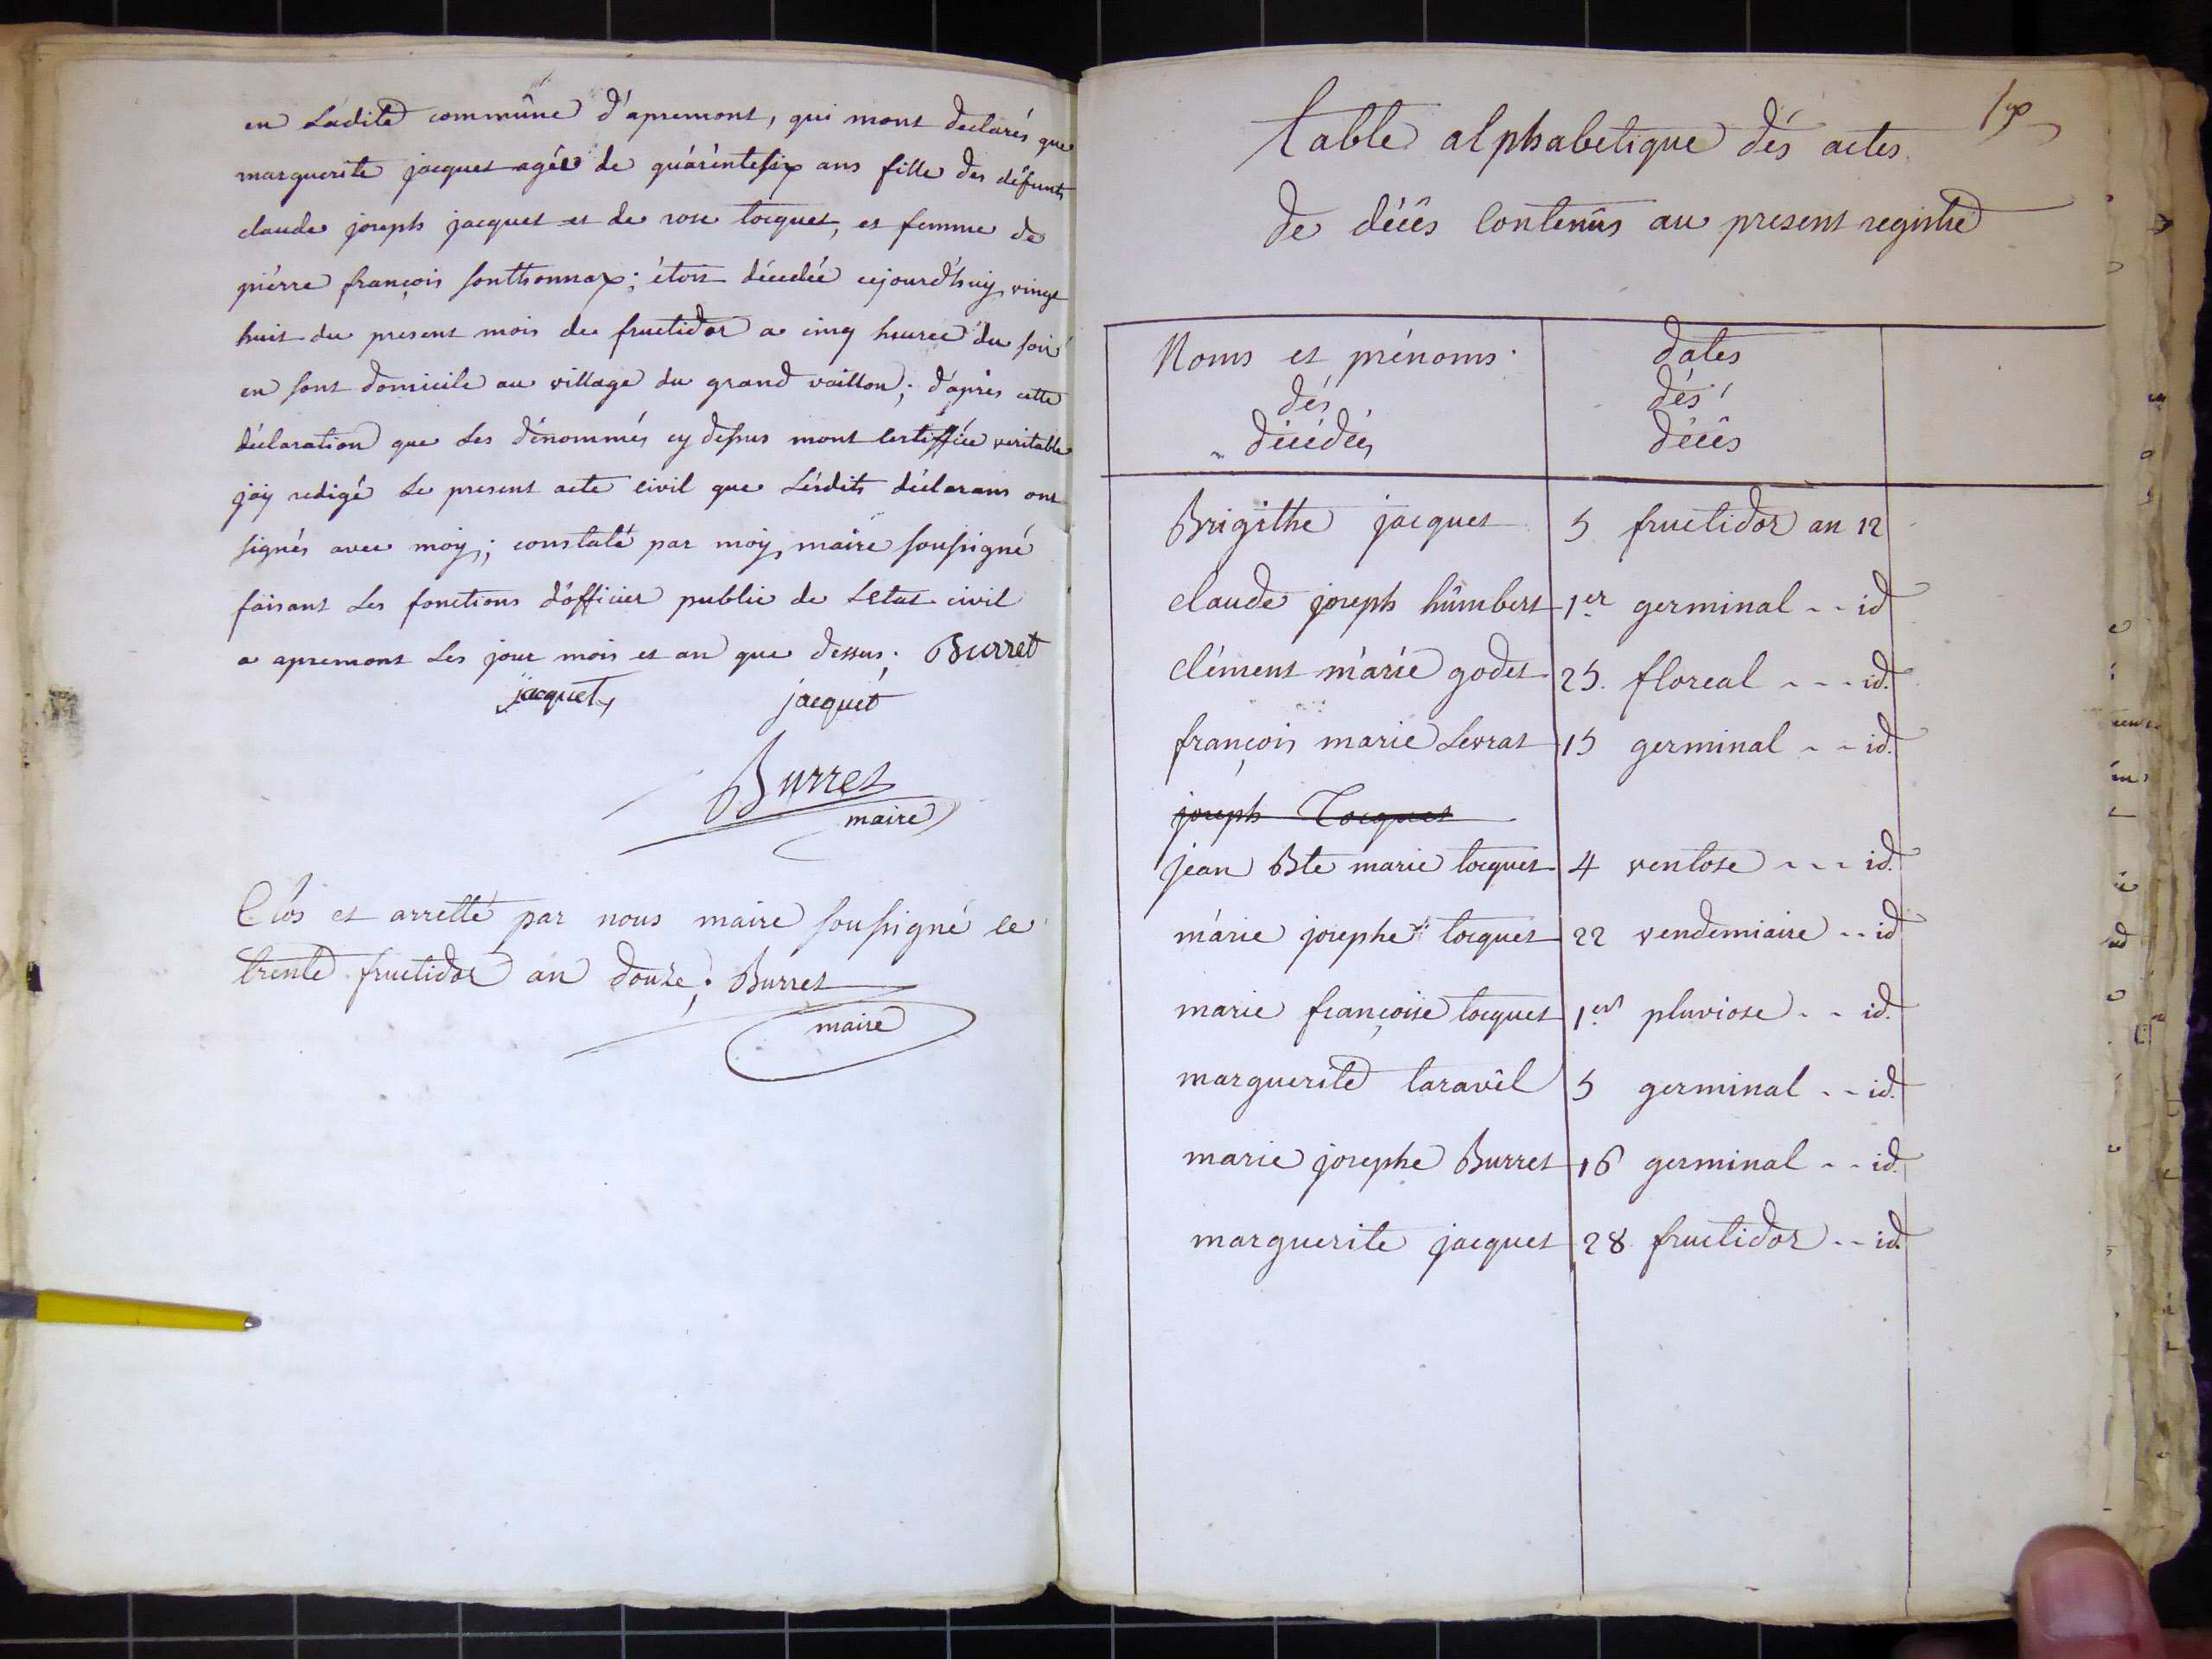 en Ladite commûne d'apremont, qui mont declarés que
marguerite jacquet agée de quárénte six ans fille des défunts
claude joseph jacquet et de rose tocquet, et femme de
piérre françois sonthonnax; étoit décedée cejourd'huy vingt
huit du present mois de fructidor a cinq heures du soir
en sont domicile au village du grand vaillon; d'aprés cette
déclaration que Les dénommés cy dessus mont certiffiée veritable
j'ay redigé Le present acte civil que Lésdits déclarans ont
signés avec moy; constaté par moy, maire soussigné
faisant Les fonctions d'officier public de Letat civil
a apremont Les jour mois et an que dessus; Burret
jacquet, jacquet
Burret
maire
Clos et arretté par nous maire soussigné le
trente fructidor an douze; Burret
maire
table alphabetique dés actes
de décês contenûs au present registre
Noms et prénoms dates
dés dés
décédés décês
Brigithe jacquet 5 fructidor an 12
claude joseph hûmbert 1er germinal -- id
clément márie godet 25. floreal --- id.
françois marie Levrat 15 germinal -- id.
joseph Tocquet
jean Bte marie tocquet 4 ventose --- id.
márie josephe tocquet 22 vendemiaire -- id
marie françoise tocquet 1er pluviose -- id.
marguerite taravêl 5 germinal -- id.
marie josephe Burret 16 germinal -- id.
marguerite jacquet 28 fructidor -- id.